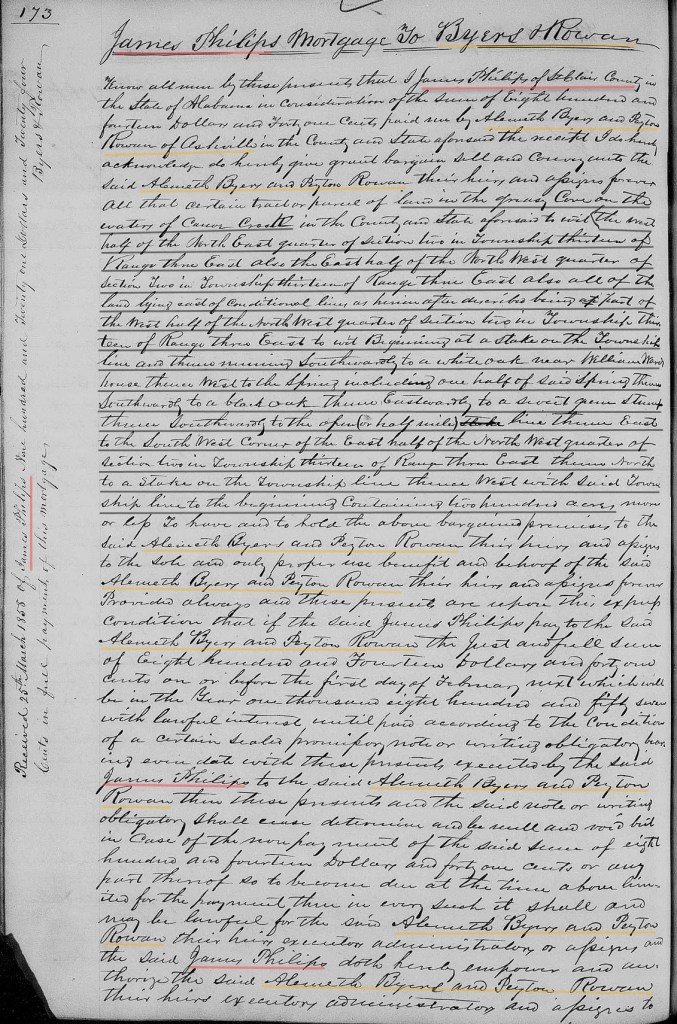 173
James Philips Mortgage To Byers & Rowan
Know all men by these presents that I James Philips of St Clair County in
the State of Alabama in Consideration of the sum of Eight hundred and
fourteen Dollars and Forty one Cents paid me by Alemeth Byers and Peyton
Rowan of Ashville in the County and State aforesaid the receipt I do hereby
acknowledge do hereby give grant bargain sell and Convey unto the
said Alemeth Byers and Peyton Rowan their heirs and assigns forever
All that certain tract or parcel of land in the great Cove on the
waters of Canoe Creek in the County and State aforesaid to wit the West
half of the North East quarter of Section two in Township thirteen of
Range three East also the East half of the North West quarter of
Section Two in Township thirteen of Range three East also all of the
land lying east of Conditional line as herein after described being part of
the West half of the North West quarter of Section two in Township thir
teen of Range three East to wit Beginning at a Stake on the Township
line and thence running Southwardly to a white oak near William Wards
house thence West to the Spring including one half of said Spring thence
Southwardly to a black oak thence Eastwardly to a sweet gum stump
thence Southwardly to the open (or half mile) line thence East
to the South West Corner of the East half of the North West quarter of
Section two in Township thirteen of Range three East thence North
to a Stake on the Township line thence West with said Town
ship line to the beginning Containing two hundred acres more
or less To have and to hold the above bargained premises to the
said Alemeth Byers and Peyton Rowan their heirs and assigns
to the sole and only proper use benefit and behoof of the said
Alemeth Byers and Peyton Rowan their heirs and assigns forever
Provided always and these presents are upon this express
Condition that if the said James Philips pay to the said
Alemeth Byers and Peyton Rowan the Just and full sum
of Eight hundred and Fourteen Dollars and forty one
cents on or before the first day of February next which will
be in the Year one thousand eight hundred and fifty seven
with lawful interest until paid according to the Condition
of a certain sealed promissory note or writing obligatory bear
ing even date with these presents executed by the said
James Philips to the said Alemeth Byers and Peyton
Rowan then these presents and the said note or writing
obligatory shall cease determine and be null and void but
in Case of the non payment of the said sum of eight
hundred and fourteen Dollars and forty one cents or any
part thereof so to become due at the time above lim
ited for the payment then in every such it shall and
may be lawful for the said Alemeth Byers and Peyton
Rowan their heirs executors administrators or assigns and
the said James Philips doth hereby empower and au
thorize the said Alemeth Byers and Peyton Rowan
their heirs executors administrators and assigns to
Received 25th March 1858 of James Philips Nine hundred and Twenty one Dollars and Twenty four
Cents in full payment of this mortgage
Byers & Rowan